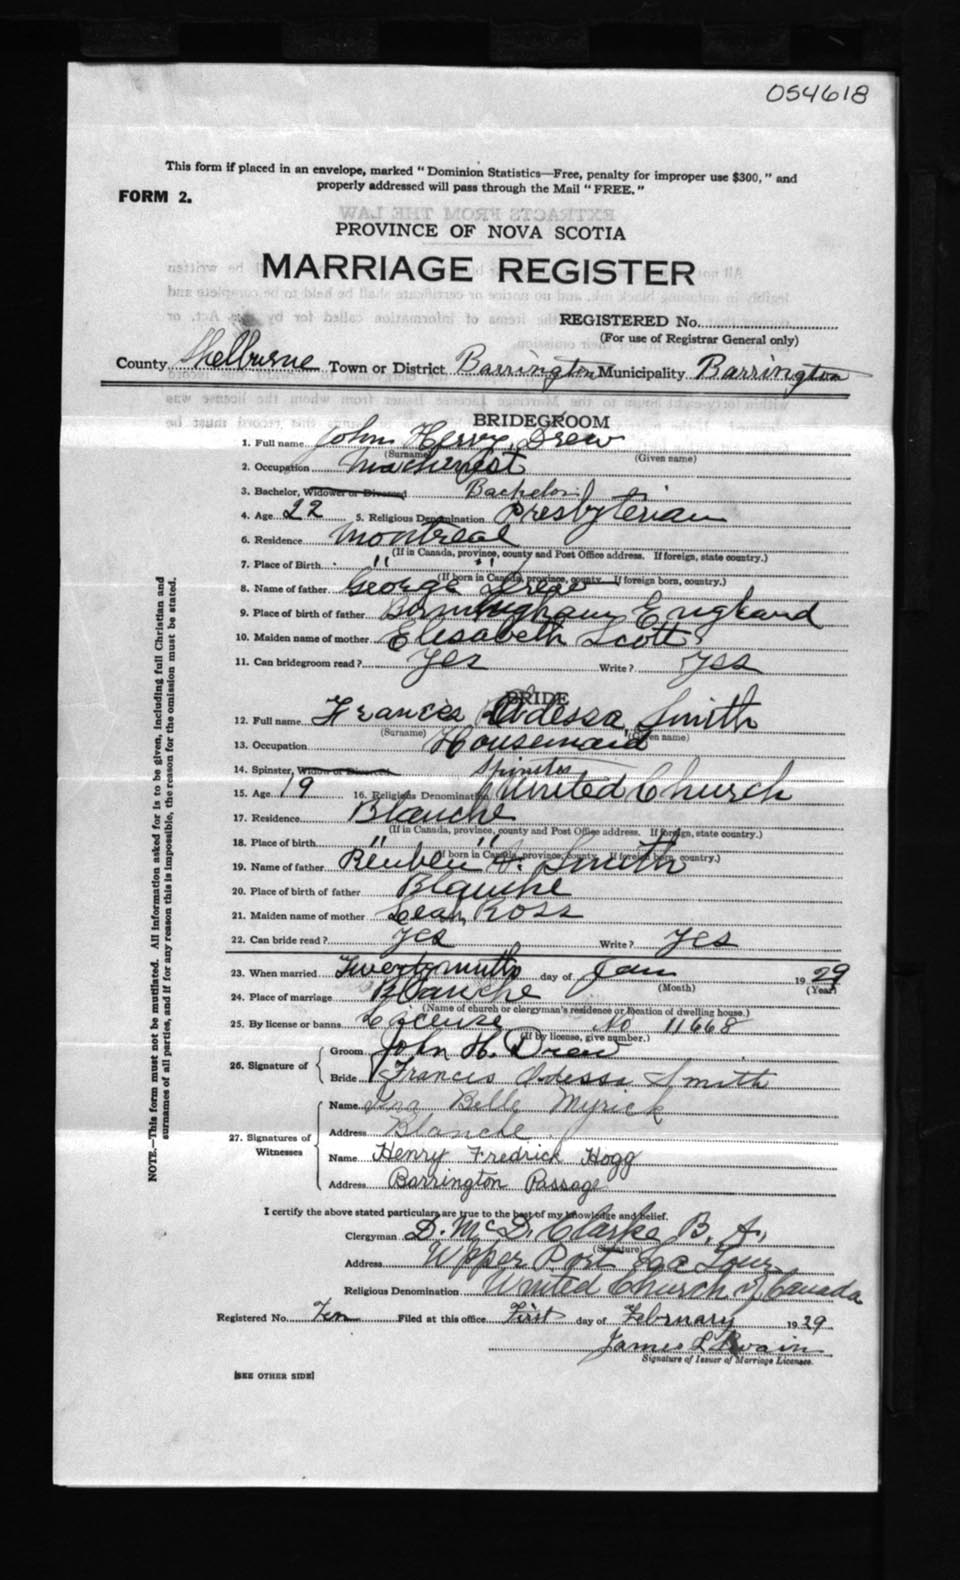 054618
This form if placed in an envelope, marked "Dominion Statistics—Free, penalty for improper use $300," and
properly addressed will pass through the Mail "FREE."
FORM 2.
EXTRACTS FROM THE LAW
PROVINCE OF NOVA SCOTIA
MARRIAGE REGISTER
REGISTERED No.
(For use of Registrar General only)
County Shelburne Town or District Barrington Municipality Barrington
BRIDEGROOM
1. Full name John Henry Drew
(Surname) (Given name)
2. Occupation Machinest
3. Bachelor, Widower or Divorced Bachelor
4. Age 22 5. Religious Denomination Presbyterian
6. Residence Montreal
(If in Canada, province, county and Post Office address. If foreign, state country.)
7. Place of Birth " "
(If born in Canada, province, county. If foreign born, country.)
8. Name of father George Drew
9. Place of birth of father Birmingham England
10. Maiden name of mother Elisabeth Scott
11. Can bridegroom read? Yes Write? Yes
BRIDE
12. Full name Francis Odessa Smith
(Surname) (Given name)
13. Occupation Housemaid
14. Spinster, Widow or Divorced Spinster
15. Age 19 16. Religious Denomination United Church
17. Residence Blanche
(If in Canada, province, county and Post Office address. If foreign, state country.)
18. Place of birth " "
(If born in Canada, province, county. If foreign born, country.)
19. Name of father Reuben A. Smith
20. Place of birth of father Blanche
21. Maiden name of mother Leah Ross
22. Can bride read? Yes Write? Yes
23. When married day of Jan 1929
(Month) (Year)
24. Place of marriage Blanche
(Name of church or clergyman's residence or location of dwelling house.)
25. By license or banns License No 11668
(If by license, give number.)
26. Signature of Groom John H. Drew
Bride Francis Odessa Smith
27. Signatures of Witnesses
Name Belle Myrick
Address Blanche
Name Henry Fredrick Hogg
Address Barrington Passage
I certify the above stated particulars are true to the best of my knowledge and belief.
Clergyman D. McD. Clarke B. A.
(Signature)
Address Upper Port La Tour
Religious Denomination United Church of Canada
Registered No. Ten Filed at this office First day of February 1929
James L Swain
Signature of Issuer of Marriage Licenses.
[SEE OTHER SIDE]
NOTE.—This form must not be mutilated. All information asked for is to be given, including full Christian and
surnames of all parties, and if for any reason this is impossible, the reason for the omission must be stated.